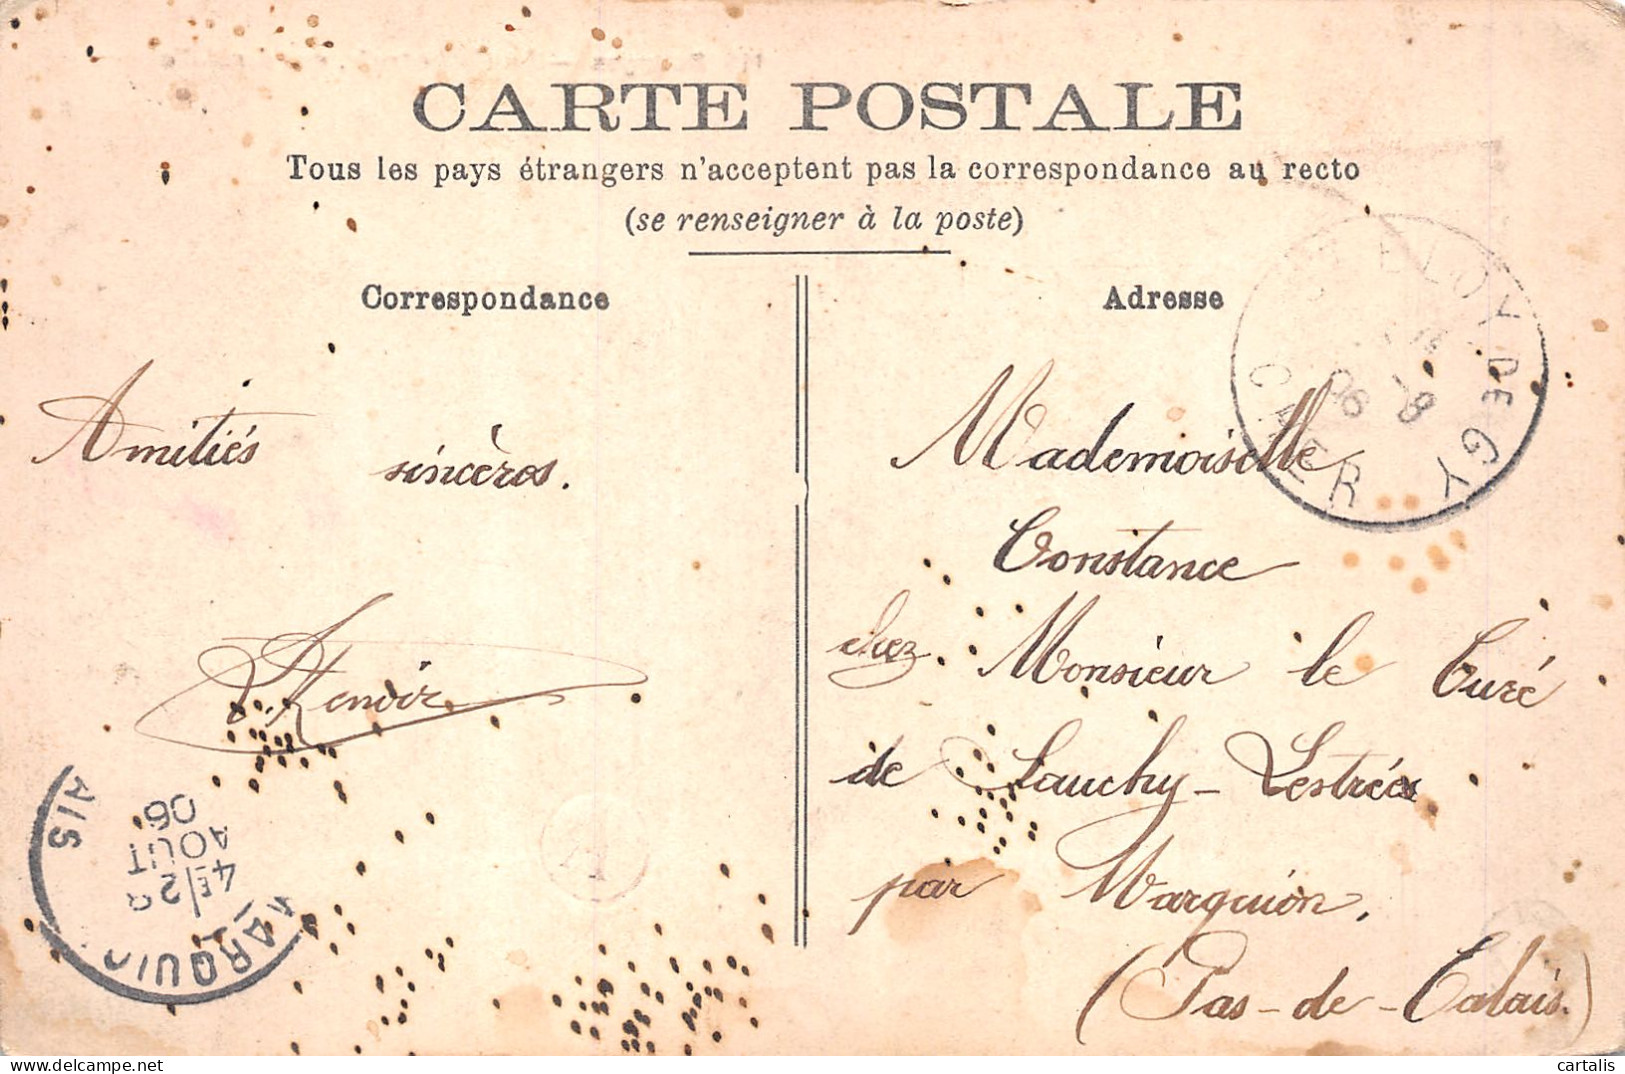 CARTE POSTALE
Tous les pays étrangers n'acceptent pas la correspondance au recto
(se renseigner à la poste)
Correspondance
Adresse
Amitiés
sincères.
Renoir
Mademoiselle
Constance
chez Monsieur le Curé
de Sauchy-Lestrées
par Marquion.
(Pas-de-Calais.)
ELOY DE GY
CHER
06
4E/2
AOUT
06
ARQUI
AIS
delcampe.net
cartalis